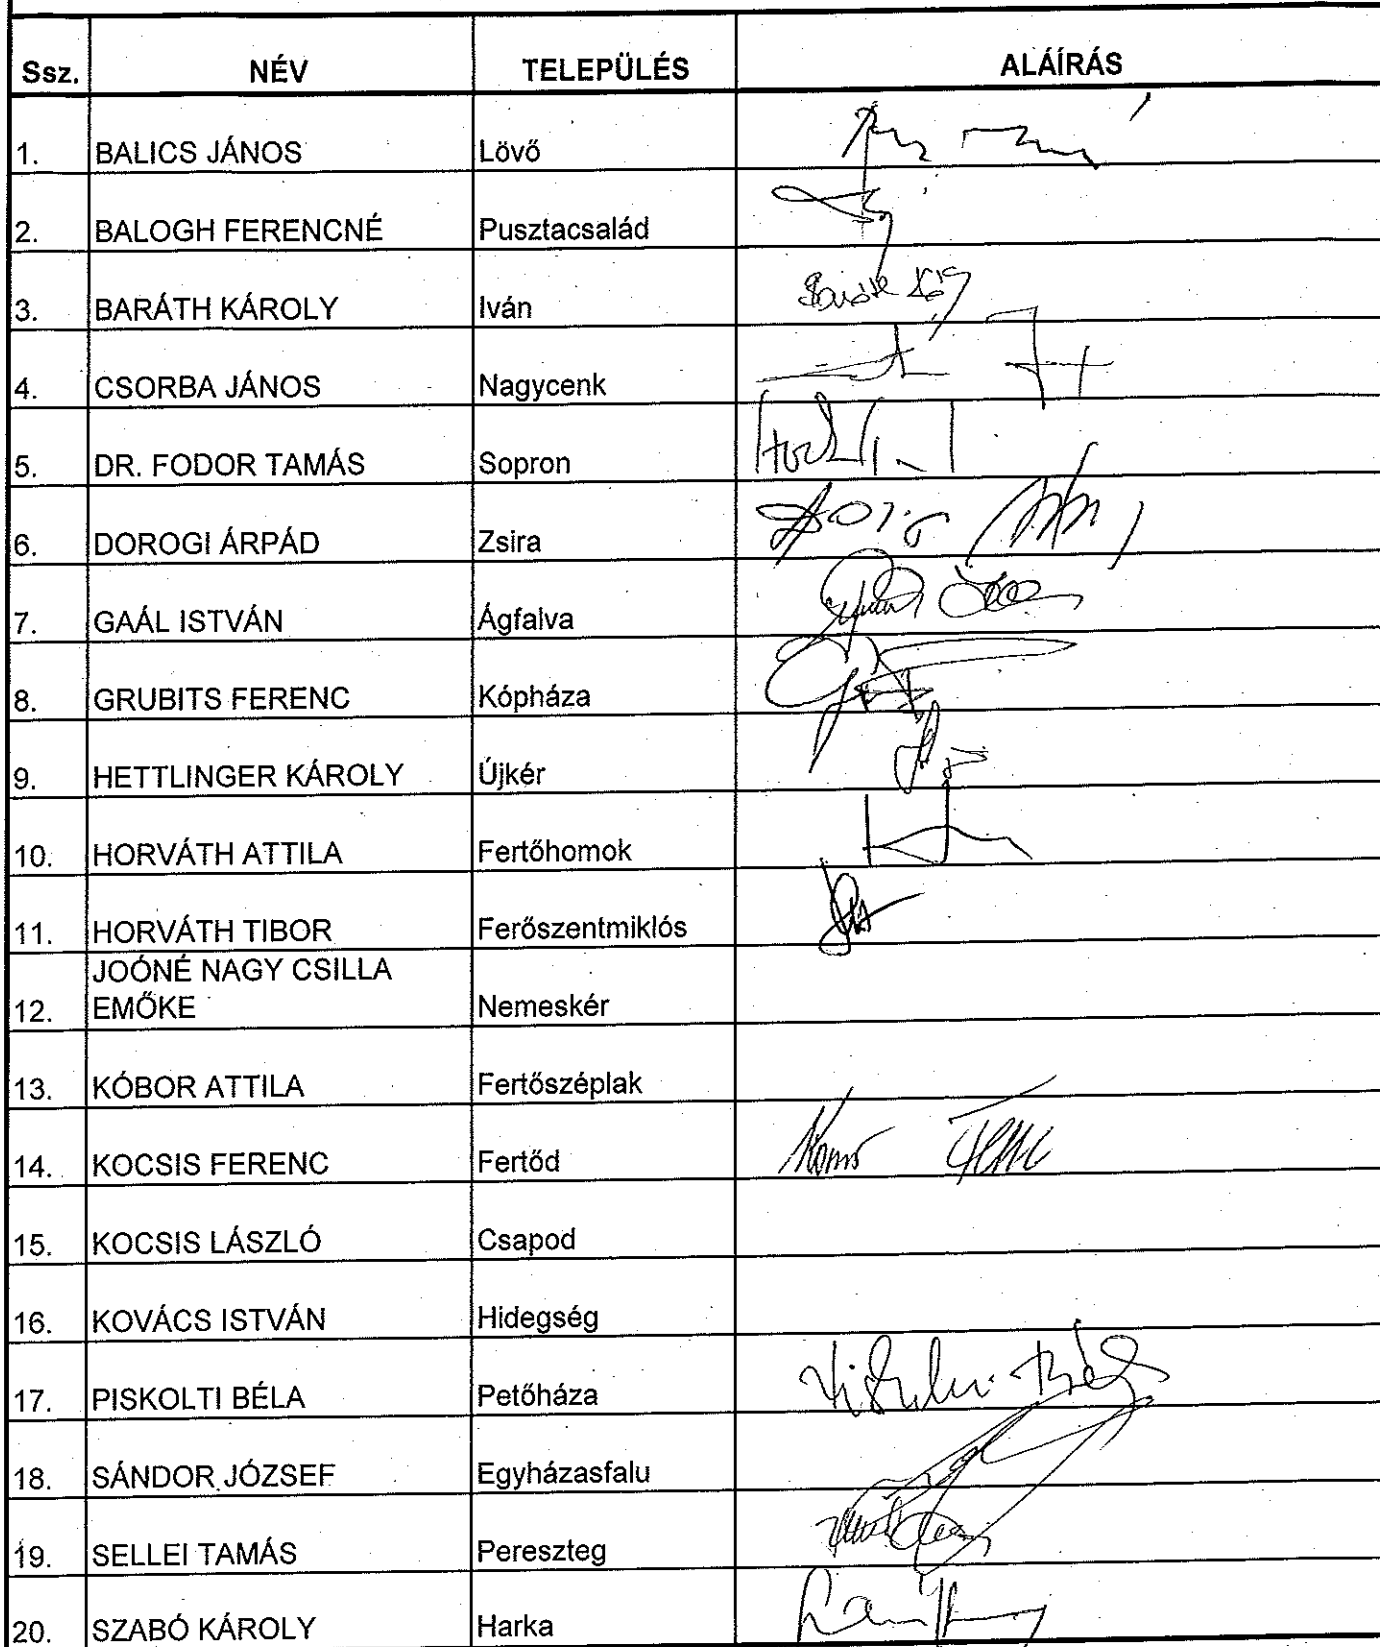 Ssz. NÉV TELEPÜLÉS ALÁÍRÁS
1. BALICS JÁNOS Lövő
2. BALOGH FERENCNÉ Pusztacsalád
3. BARÁTH KÁROLY Iván
4. CSORBA JÁNOS Nagycenk
5. DR. FODOR TAMÁS Sopron
6. DOROGI ÁRPÁD Zsira
7. GAÁL ISTVÁN Ágfalva
8. GRUBITS FERENC Kópháza
9. HETTLINGER KÁROLY Újkér
10. HORVÁTH ATTILA Fertőhomok
11. HORVÁTH TIBOR Ferőszentmiklós
JOÓNÉ NAGY CSILLA
12. EMŐKE Nemeskér
13. KÓBOR ATTILA Fertőszéplak
14. KOCSIS FERENC Fertőd
15. KOCSIS LÁSZLÓ Csapod
16. KOVÁCS ISTVÁN Hidegség
17. PISKOLTI BÉLA Petőháza
18. SÁNDOR JÓZSEF Egyházasfalu
19. SELLEI TAMÁS Pereszteg
20. SZABÓ KÁROLY Harka